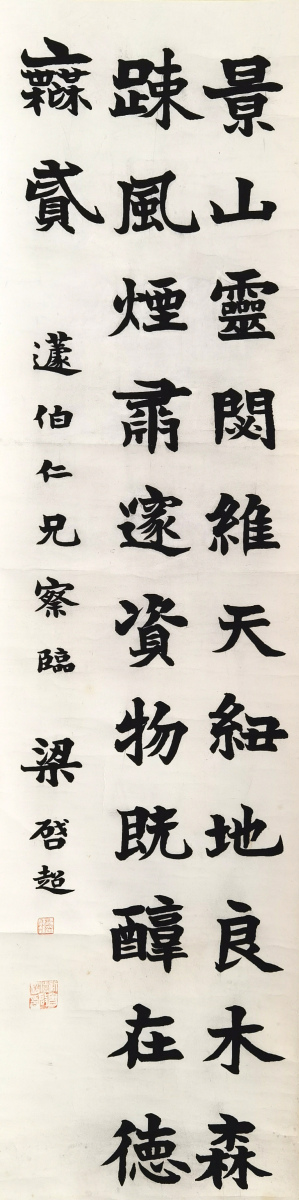 景山靈閟維天紐地良木森
踈風煙肅邃資物旣醇在德
貳
伯仁兄察臨
梁啓超